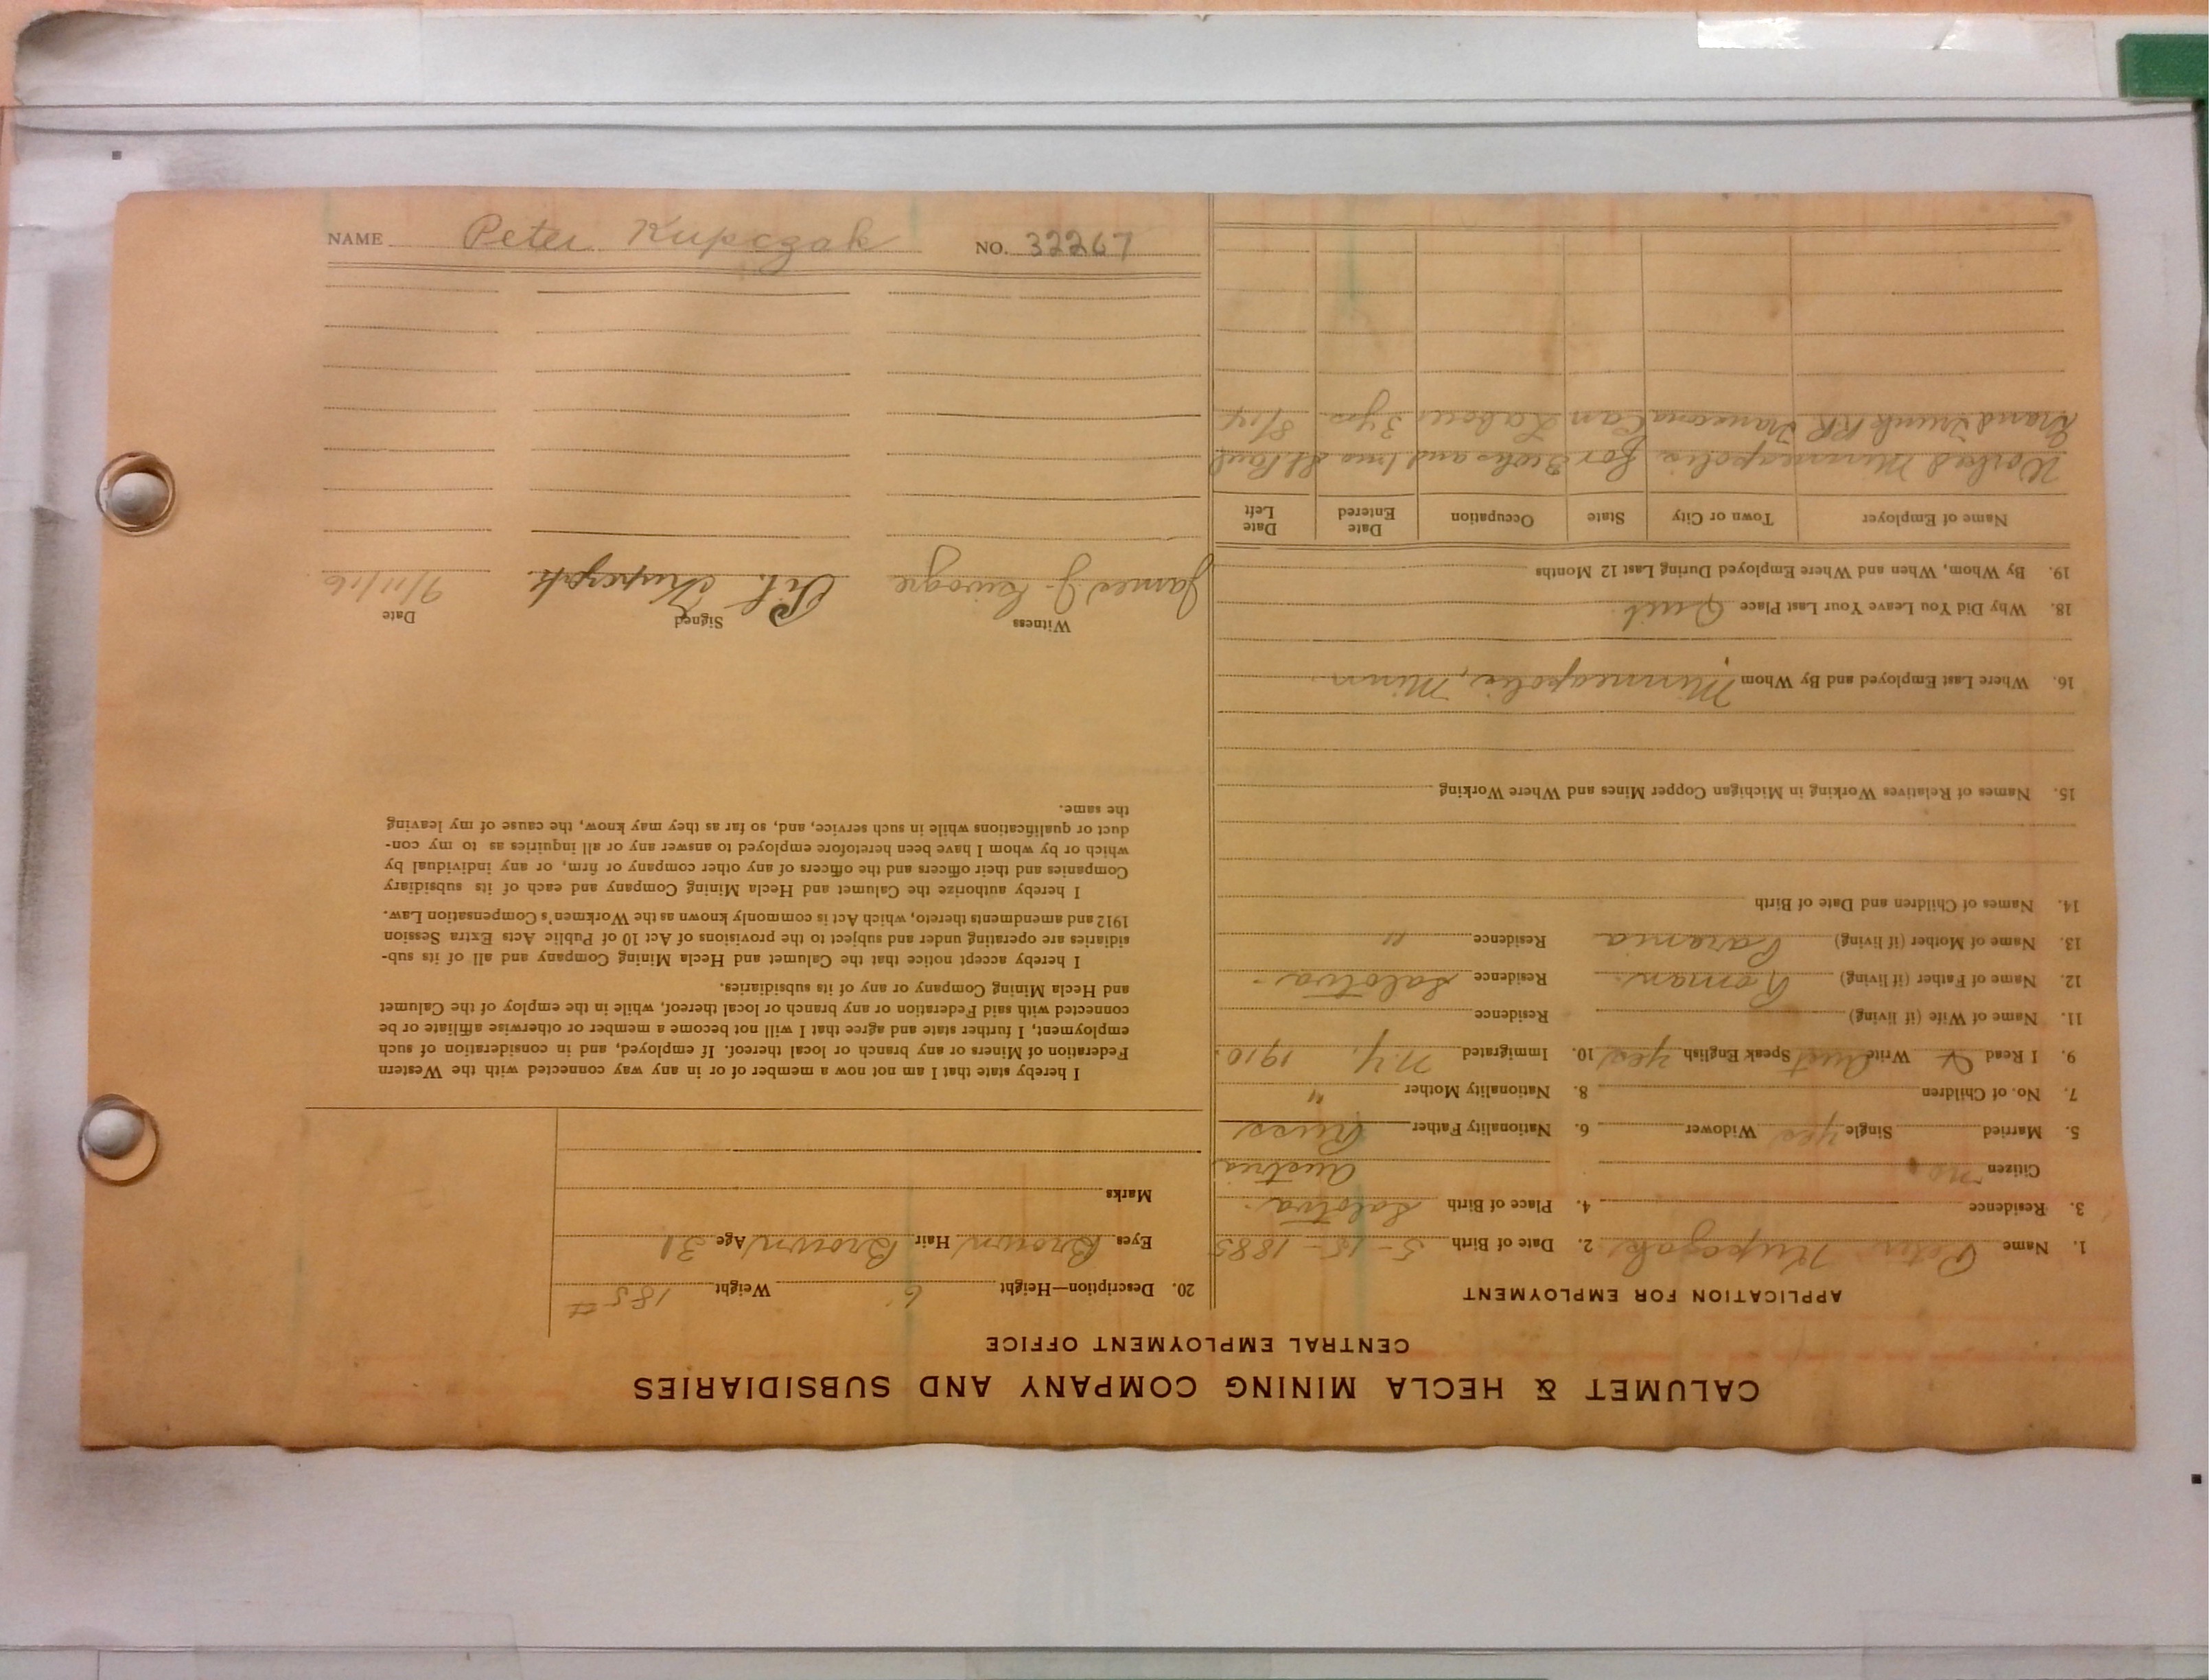 NAME Peter Kupczak NO. 32267
CALUMET & HECLA MINING COMPANY AND SUBSIDIARIES
CENTRAL EMPLOYMENT OFFICE
APPLICATION FOR EMPLOYMENT
1. Name Peter Kupczak 2. Date of Birth 5-15-1885
3. Residence 4. Place of Birth Salotwa
Citizen no Austria
5. Married Single yes Widower 6. Nationality Father Russ
7. No. of Children 8. Nationality Mother "
9. I Read & Write Aust Speak English yes 10. Immigrated N.Y. 1910
11. Name of Wife (if living) Residence
12. Name of Father (if living) Roman Residence Salotwa
13. Name of Mother (if living) Parania Residence "
14. Names of Children and Date of Birth
15. Names of Relatives Working in Michigan Copper Mines and Where Working
16. Where Last Employed and By Whom Minneapolis, Minn
18. Why Did You Leave Your Last Place Quit
19. By Whom, When and Where Employed During Last 12 Months
Name of Employer Town or City State Occupation Date Entered Date Left
Worked Minneapolis for and St Paul
Grand Trunk RR Transcona Can Labour 3 yrs 8/14
20. Description—Height 6' Weight 185#
Eyes Brown Hair Brown Age 31
Marks
I hereby state that I am not now a member of or in any way connected with the Western
Federation of Miners or any branch or local thereof. If employed, and in consideration of such
employment, I further state and agree that I will not become a member or otherwise affiliate or be
connected with said Federation or any branch or local thereof, while in the employ of the Calumet
and Hecla Mining Company or any of its subsidiaries.
I hereby accept notice that the Calumet and Hecla Mining Company and all of its sub-
sidiaries are operating under and subject to the provisions of Act 10 of Public Acts Extra Session
1912 and amendments thereto, which Act is commonly known as the Workmen's Compensation Law.
I hereby authorize the Calumet and Hecla Mining Company and each of its subsidiary
Companies and their officers and the officers of any other company or firm, or any individual by
which or by whom I have been heretofore employed to answer any or all inquiries as to my con-
duct or qualifications while in such service, and, so far as they may know, the cause of my leaving
the same.
Witness Signed Date
James J. Pit. Kupczak 7/11/16